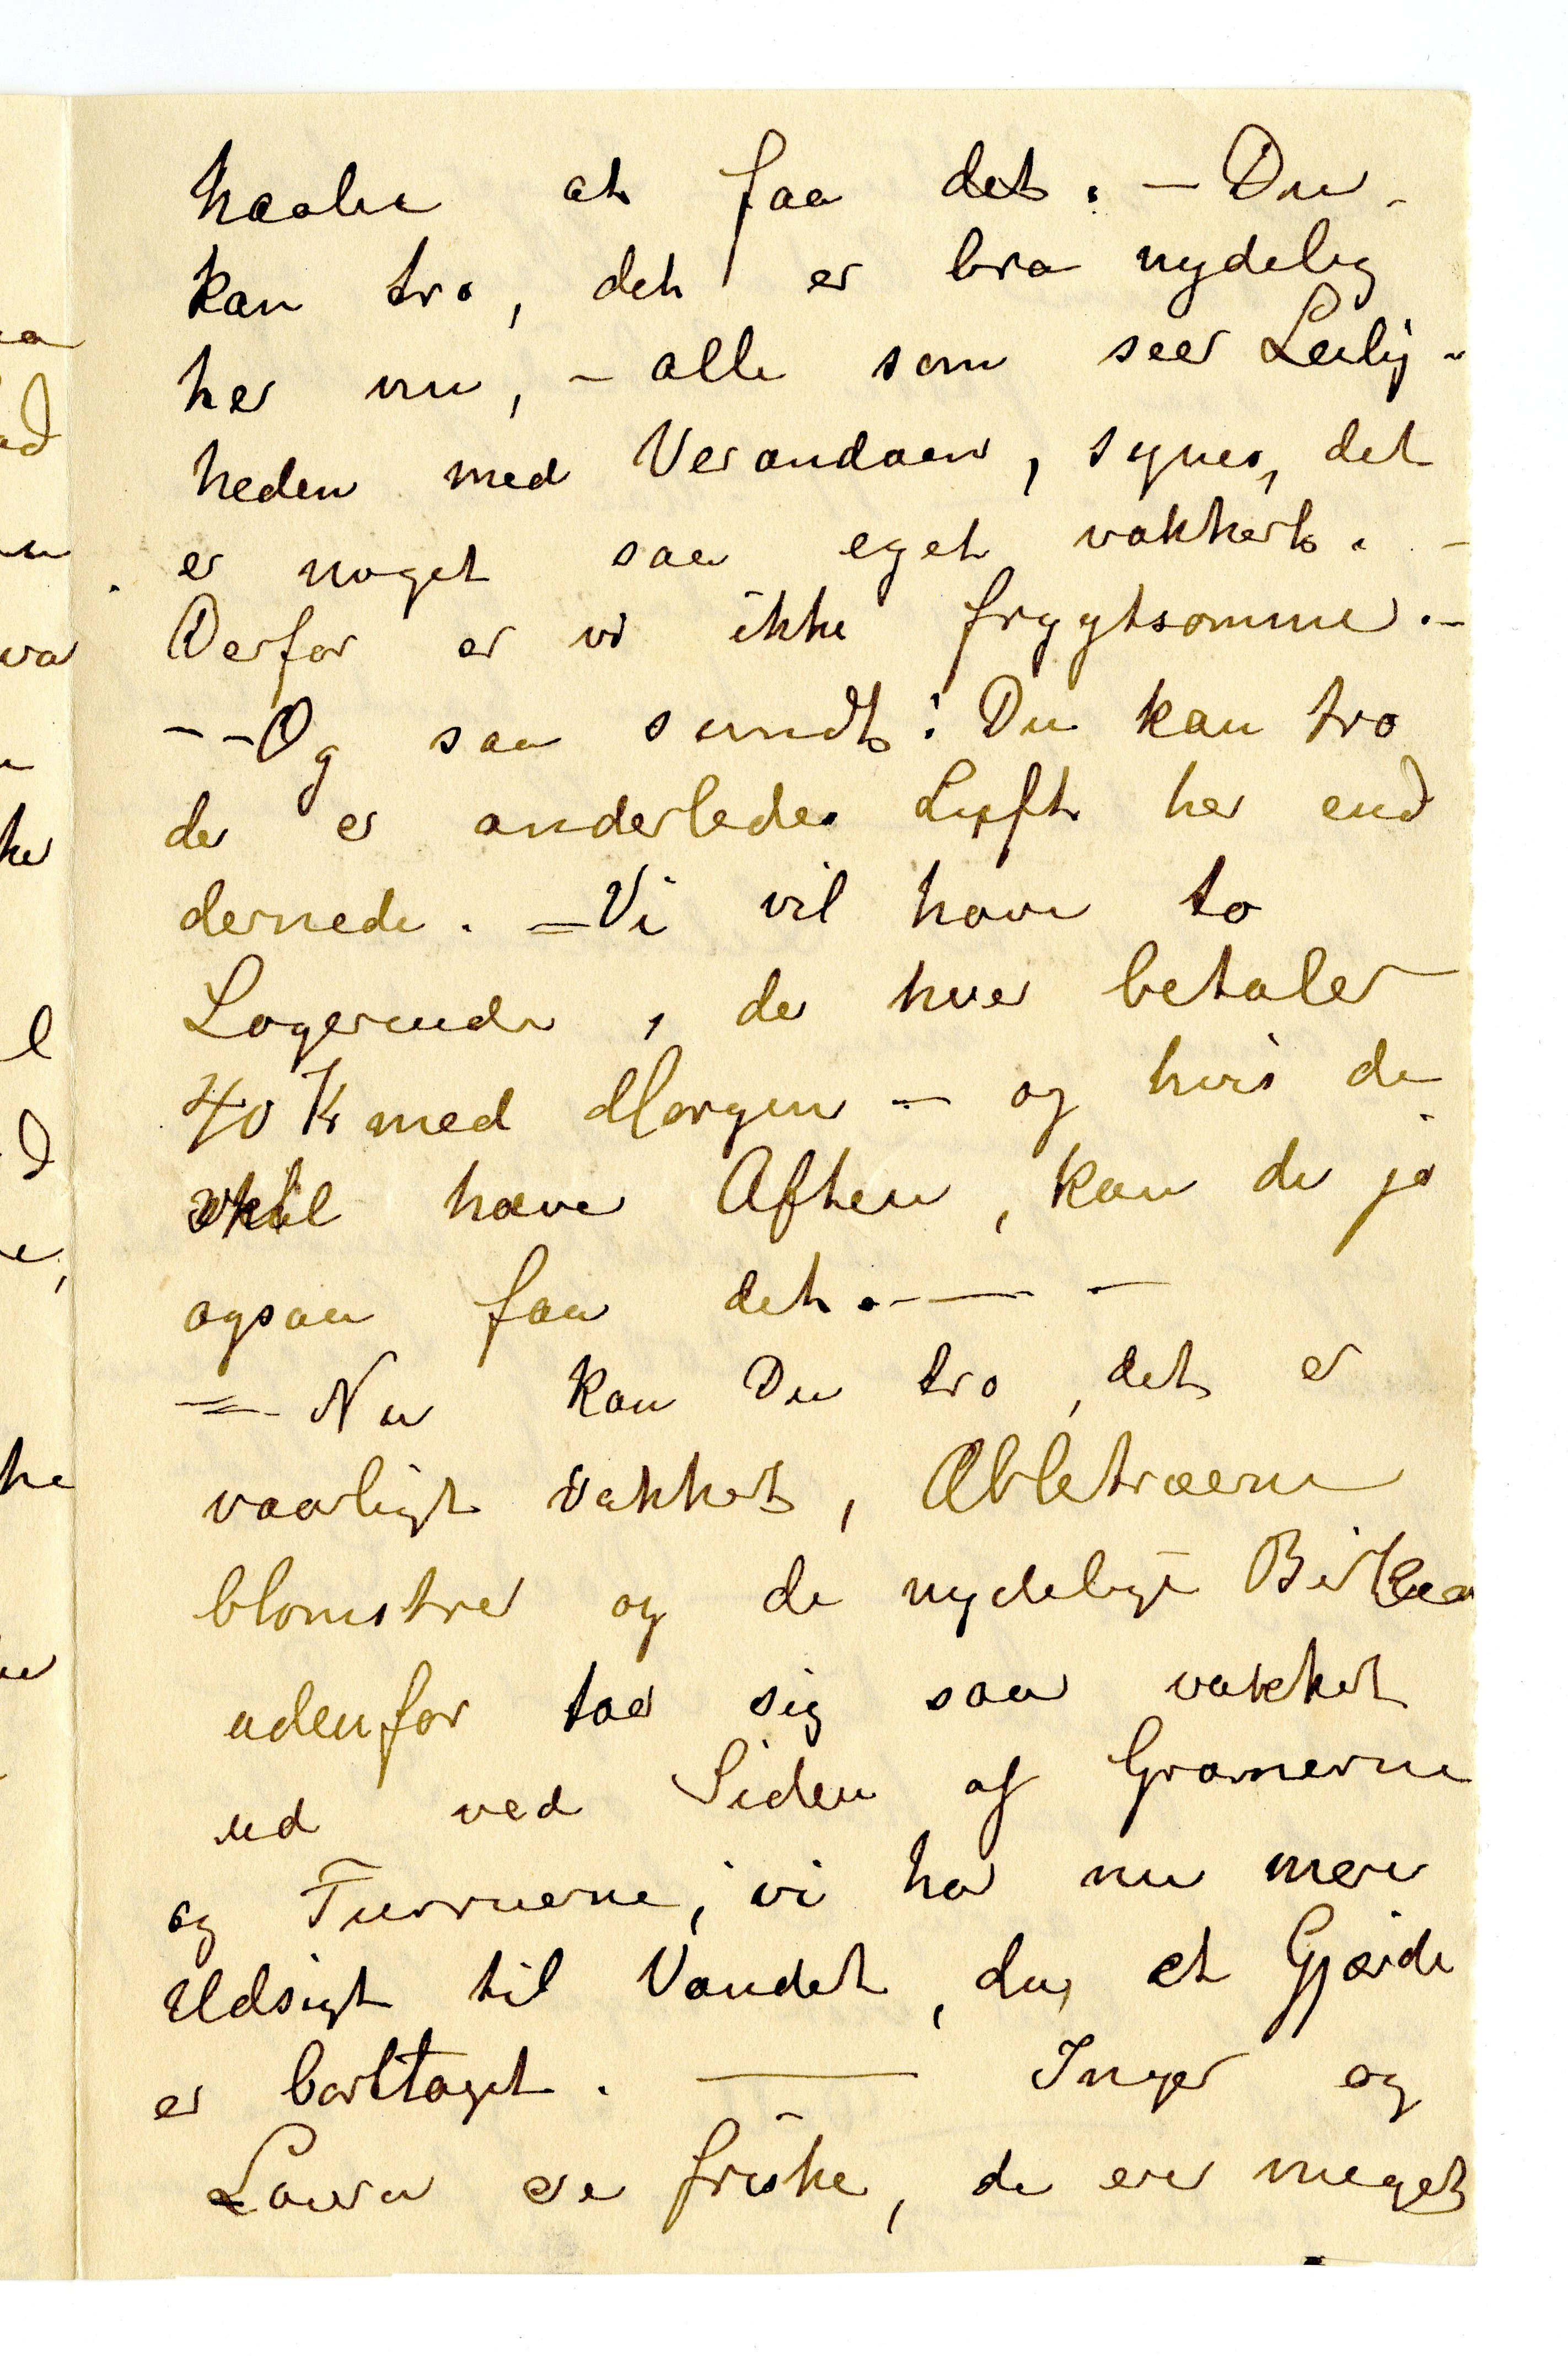 haaber at faa det. – Du
kan tro, det er bra nydelig
her nu, – alle som seer Leilig-
heden med Verandaen, synes, det
er noget saa eget vakkert. –
Derfor er vi ikke frygtsomme. –
– – Og saa sundt: Du kan tro
der er anderledes Luft her end
dernede. = Vi vil have to
Logerende, der hver betaler
40 Kr med Morgen – og hvis de
vil have Aften, kan de jo
ogsaa faa det. – – –
= Nu kan Du tro, det er
vaarligt vakkert, Æbletræerne
blomstrer og de nydelige Birke
udenfor tar sig saa vakkert
ud ved Siden af Granerne
og Furruerne, vi har nu mere
Udsigt til Vandet, da et Gjærde
er borttaget. — Inger og
Laura ere friske, de ere meget